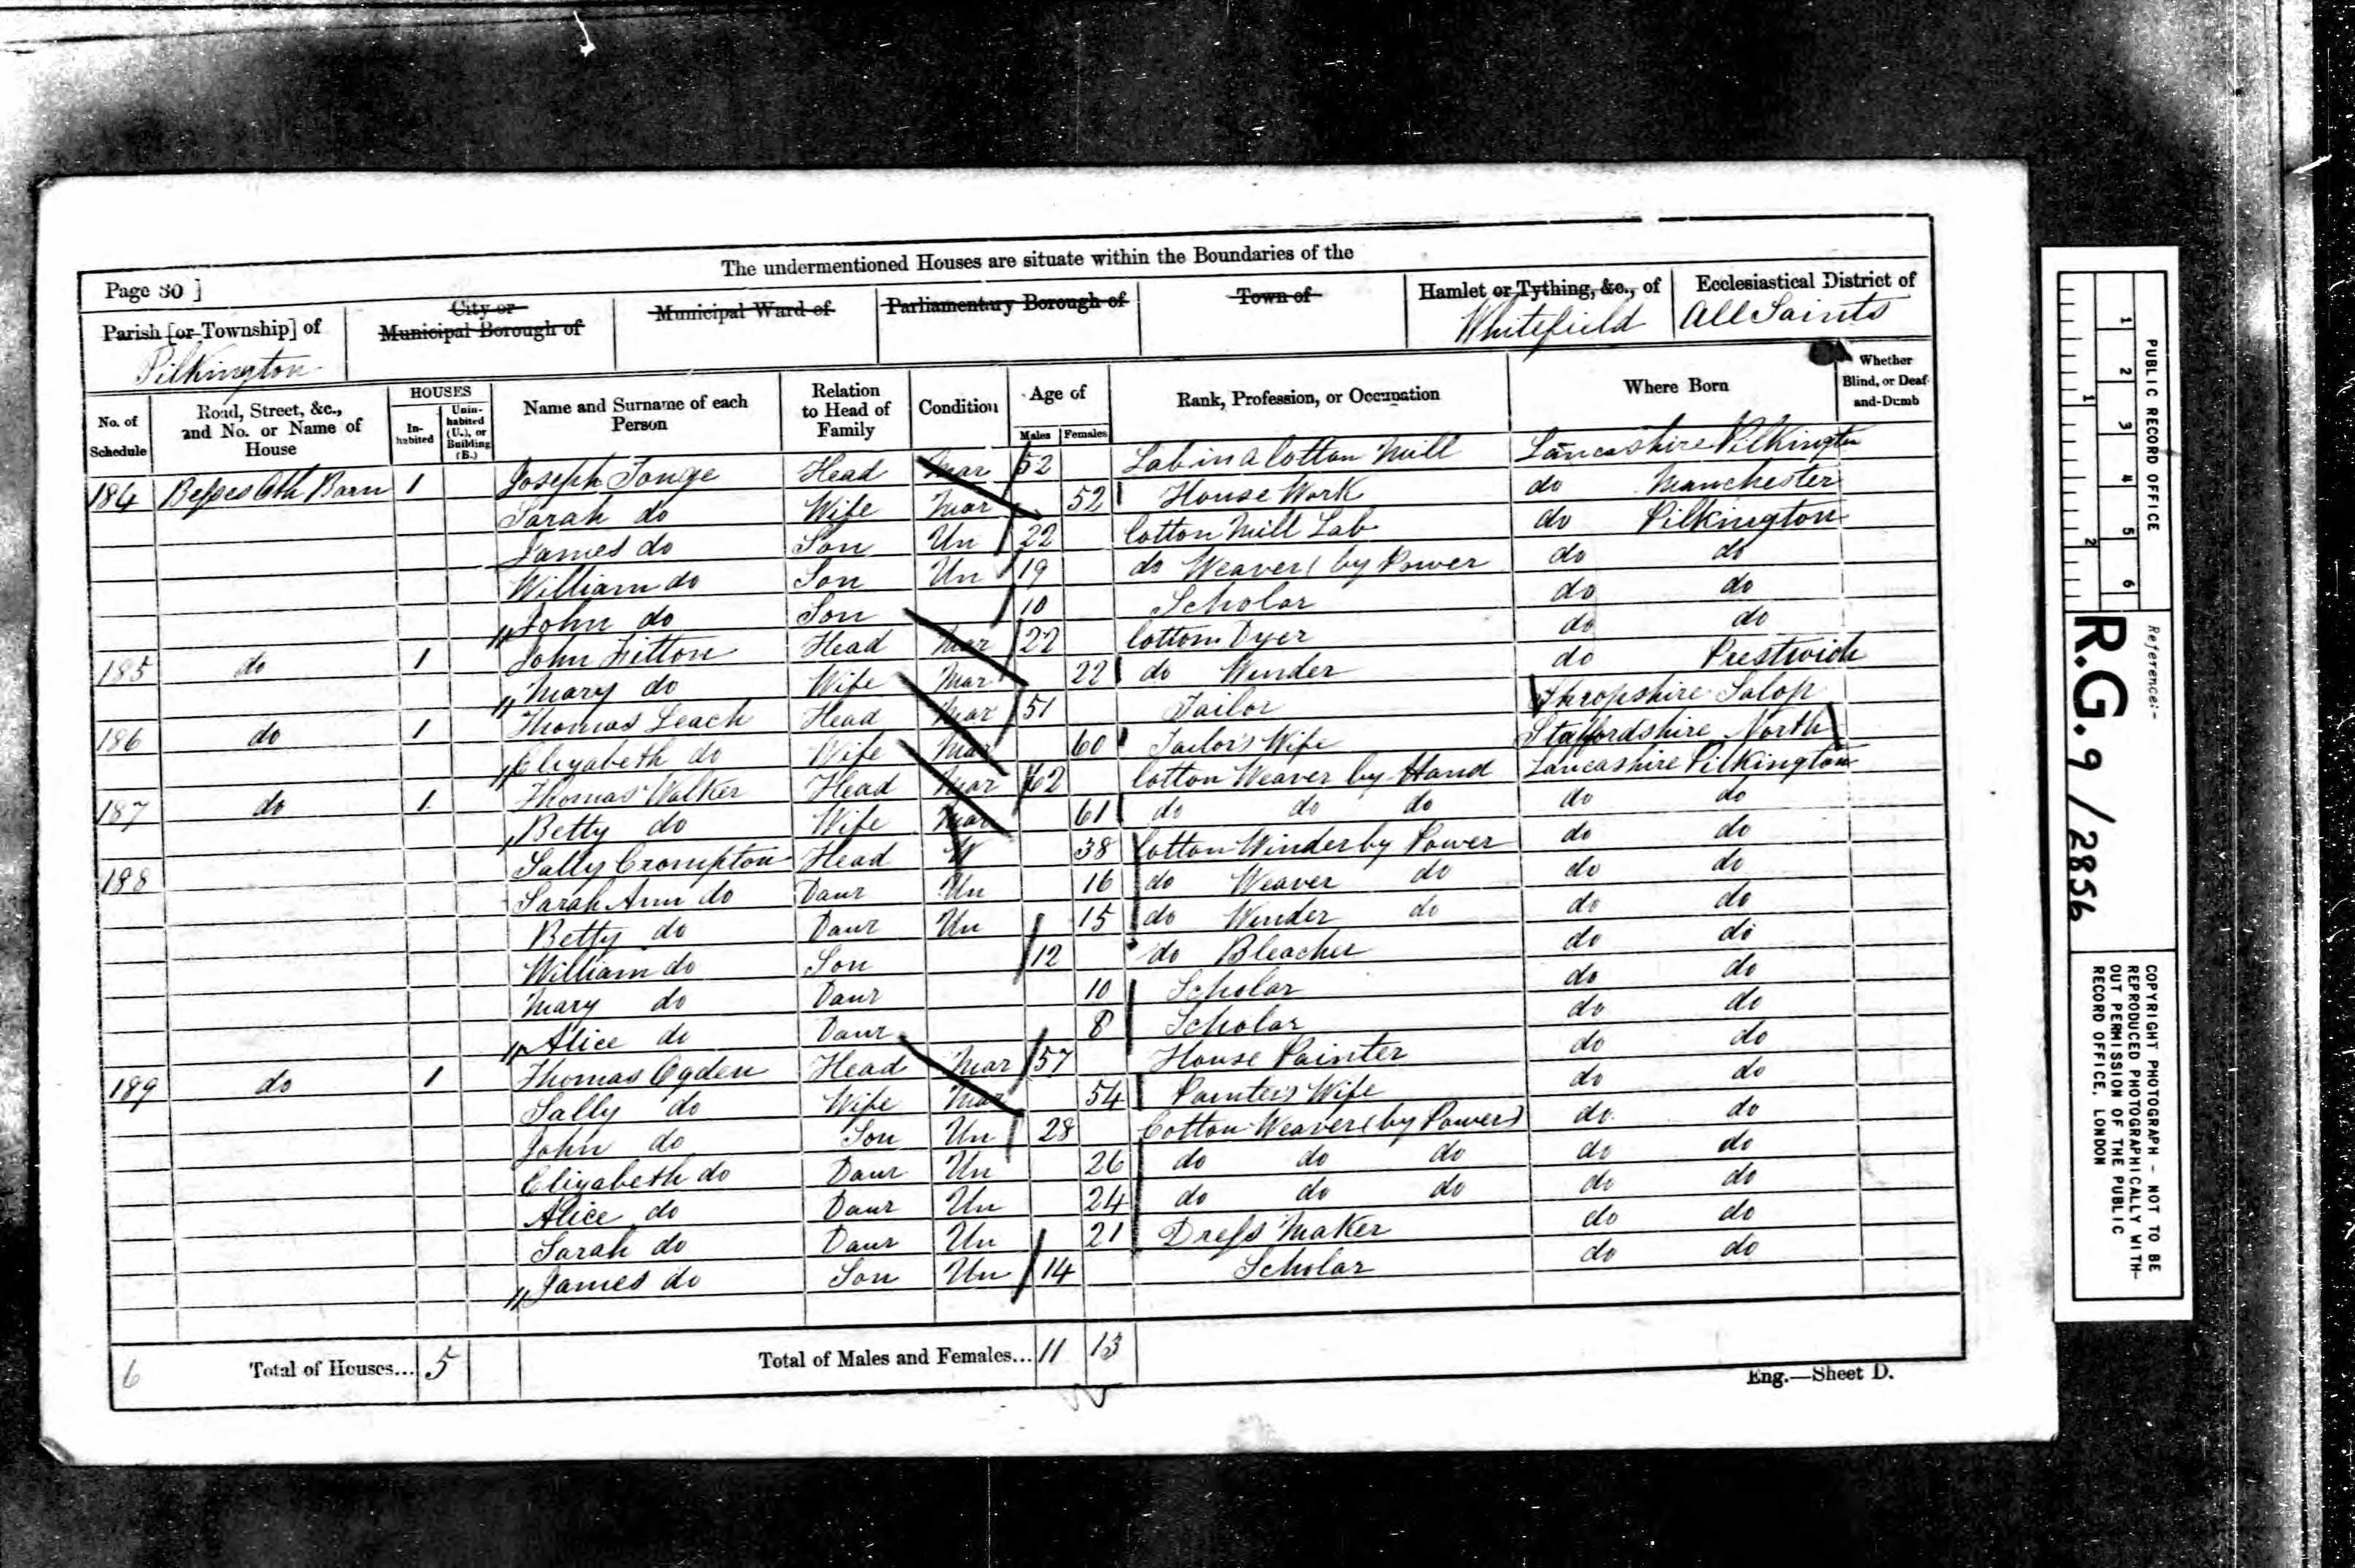 The undermentioned Houses are situate within the Boundaries of the
Page 30 ]
Parish [or Township] of
Pilkington
City or
Municipal Borough of
Municipal Ward of
Parliamentary Borough of
Town of
Hamlet or Tything, &c., of
Whitefield
Ecclesiastical District of
All Saints
No. of Schedule
Road, Street, &c., and No. or Name of House
HOUSES
In-habited
Unin-habited (U.), or Building (B.)
Name and Surname of each Person
Relation to Head of Family
Condition
Age of
Males Females
Rank, Profession, or Occupation
Where Born
Whether Blind, or Deaf-and-Dumb
184 Besses Oth Barn 1 Joseph Tonge Head Mar 52 Lab in a Cotton Mill Lancashire Pilkington
Sarah do Wife Mar 52 House Work do Manchester
James do Son Un 22 Cotton Mill Lab do Pilkington
William do Son Un 19 do Weaver (by Power do do
John do Son 10 Scholar do do
185 do 1 John Fitton Head Mar 22 Cotton Dyer do do
Mary do Wife Mar 22 do Winder do Prestwich
186 do 1 Thomas Leach Head Mar 51 Tailor Shropshire Salop
Elizabeth do Wife Mar 60 Tailor's Wife Staffordshire North
187 do 1 Thomas Walker Head Mar 62 Cotton Weaver by Hand Lancashire Pilkington
Betty do Wife Mar 61 do do do do do
188 Sally Crompton Head W 38 Cotton Winder by Power do do
Sarah Ann do Daur Un 16 do Weaver do do do
Betty do Daur Un 15 do Winder do do do
William do Son 12 do Bleacher do do
Mary do Daur 10 Scholar do do
Alice do Daur 8 Scholar do do
189 do 1 Thomas Ogden Head Mar 57 House Painter do do
Sally do Wife Mar 54 Painter's Wife do do
John do Son Un 28 Cotton Weaver (by Power) do do
Elizabeth do Daur Un 26 do do do do do
Alice do Daur Un 24 do do do do do
Sarah do Daur Un 21 Dress Maker do do
James do Son Un 14 Scholar do do
6 Total of Houses... 5 Total of Males and Females... 11 13
Eng.—Sheet D.
PUBLIC RECORD OFFICE
1 2 3 4 5 6
1 2
Reference:-
R.G. 9 / 2856
COPYRIGHT PHOTOGRAPH - NOT TO BE
REPRODUCED PHOTOGRAPHICALLY WITH-
OUT PERMISSION OF THE PUBLIC
RECORD OFFICE, LONDON